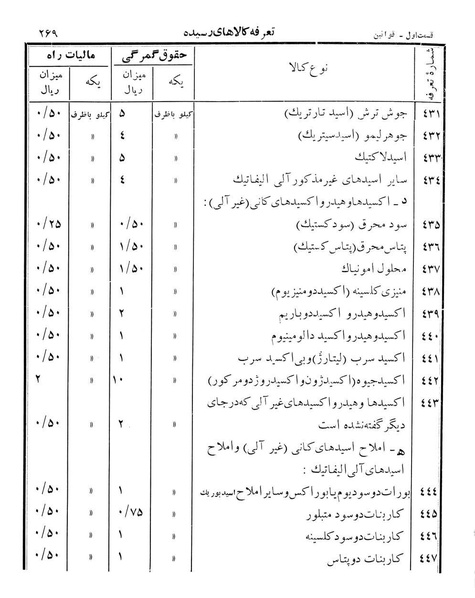 قسمت اول - قوانین تعرفه کالاهای رسیده ۲۶۹
شمارهٔ تعرفه نوع کالا حقوق گمرگی مالیات راه
یکه میزان ریال یکه میزان ریال
۴۳۱ جوش ترش (اسید تارتریك) کیلو باظرف ۵ کیلو باظرف ۰/۵۰
۴۳۲ جوهر لیمو (اسیدسیتریك) » ۴ » ۰/۵۰
۴۳۳ اسیدلاکتیك » ۵ » ۰/۵۰
۴۳۴ سایر اسیدهای غیرمذکور آلی الیفاتیك » ۴ » ۰/۵۰
۵ - اکسیدهاوهیدرواکسیدهای کانی (غیر آلی) :
۴۳۵ سود محرق (سودکستیك) » ۰/۵۰ » ۰/۲۵
۴۳۶ پتاس محرق (پتاس کستیك) » ۱/۵۰ » ۰/۵۰
۴۳۷ محلول امونیاك » ۱/۵۰ » ۰/۵۰
۴۳۸ منیزی کلسینه (اکسیددومنیزیوم) » ۱ » ۰/۵۰
۴۳۹ اکسیدوهیدرو اکسیددوباریم » ۲ » ۰/۵۰
۴۴۰ اکسید وهیدرو اکسید دالومینیوم » ۱ » ۰/۵۰
۴۴۱ اکسید سرب (لیتارژ) وبی اکسید سرب » ۱ » ۰/۵۰
۴۴۲ اکسیدجیوه (اکسیدژون واکسیدروژدومرکور) » ۱۰ » ۲
۴۴۳ اکسیدها وهیدرواکسیدهای غیر آلی که درجای
دیگر گفته نشده است » ۲ » ۰/۵۰
ه - املاح اسیدهای کانی (غیر آلی) واملاح
اسیدهای آلی الیفاتیك :
۴۴۴ بورات دوسودیوم یا بوراکس وسایر املاح اسیدبوریك » ۱ » ۰/۵۰
۴۴۵ کاربنات دوسود متبلور » ۰/۷۵ » ۰/۵۰
۴۴۶ کاربنات دوسود کلسینه » ۱ » ۰/۵۰
۴۴۷ کاربنات دوپتاس » ۱ » ۰/۵۰